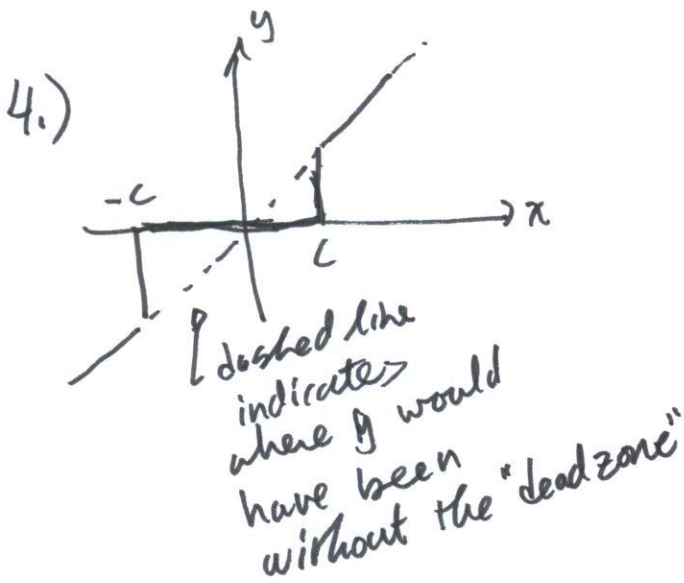 4.)
y
-c
x
c
dashed line
indicates
where y would
have been
without the "dead zone"